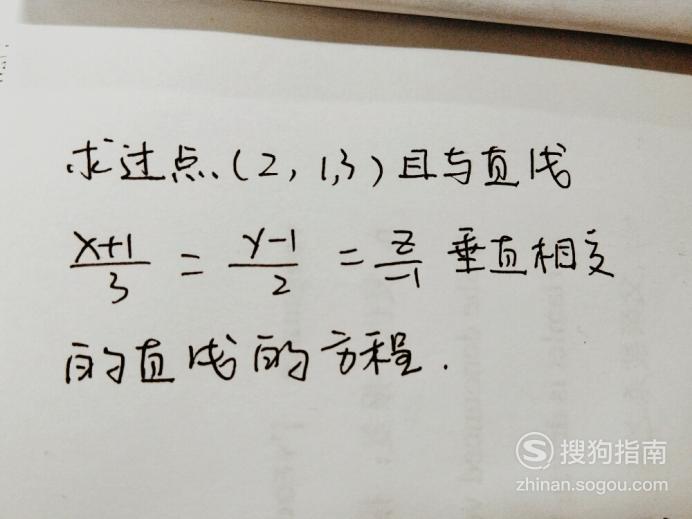 求过点(2,1,3)且与直线
x+1/3 = y-1/2 = z/-1 垂直相交
的直线的方程.
S 搜狗指南
zhinan.sogou.com